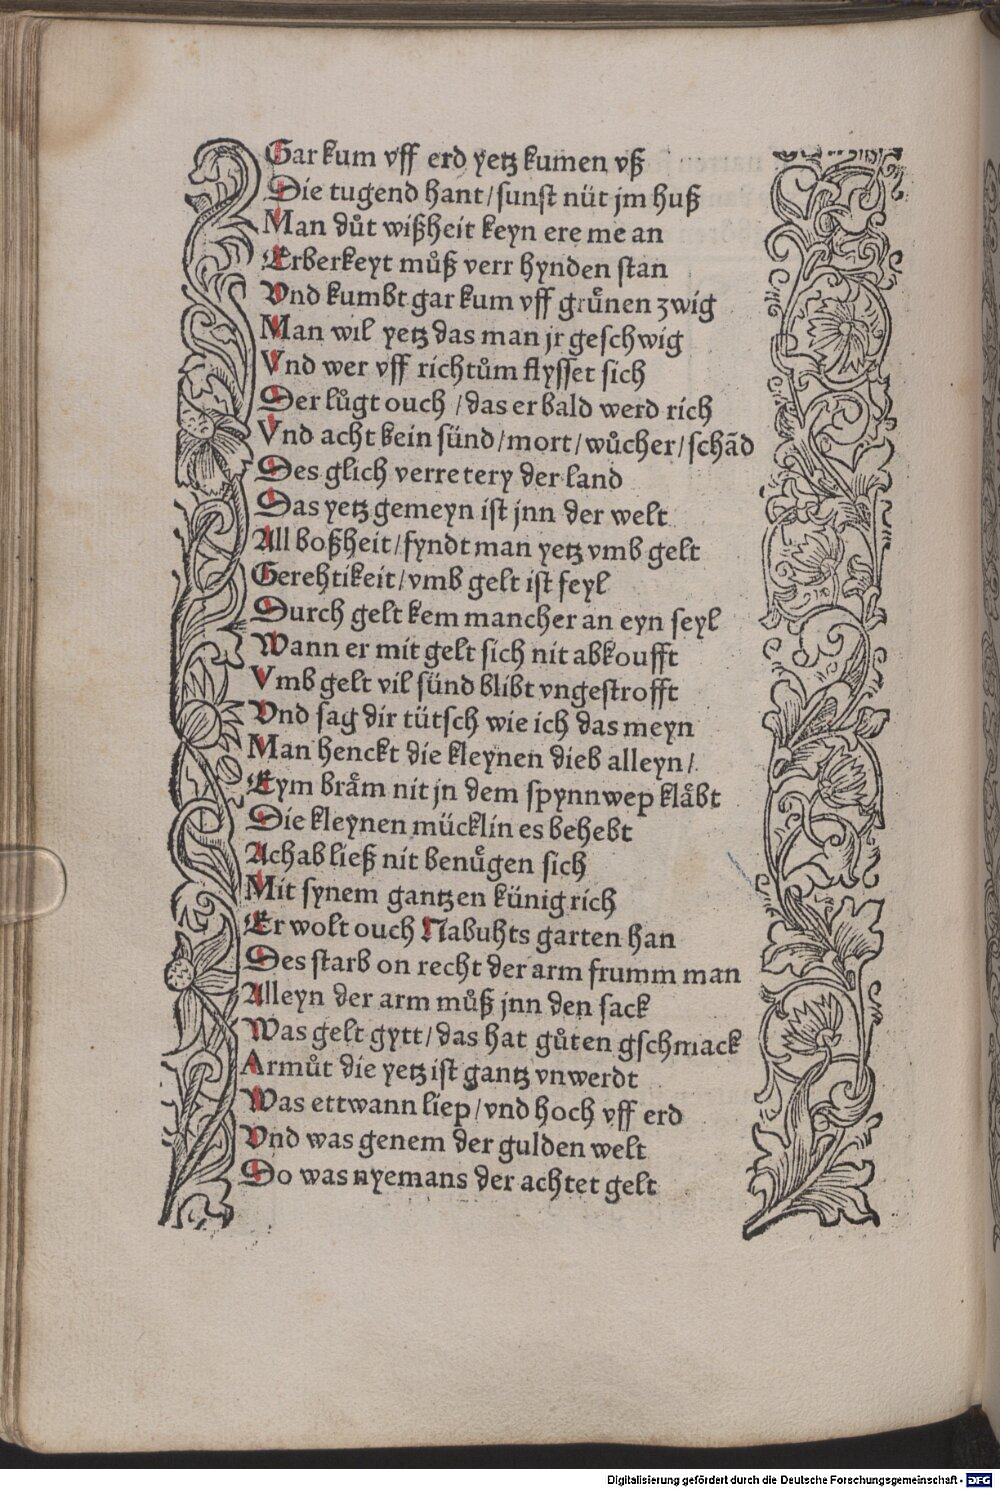 Gar kum vff erd yetz kumen vß
Die tugend hant/sunst nüt jm huß
Man důt wißheit keyn ere me an
Erberkeyt můß verr hynden stan
Vnd kumbt gar kum vff grůnen zwig
Man wil yetz das man jr geschwig
Vnd wer vff richtům flysset sich
Der lůgt ouch /das er bald werd rich
Vnd acht kein sünd/mort/wůcher/schãd
Des glich verretery der land
Das yetz gemeyn ist jnn der welt
All boßheit/fyndt man yetz vmb gelt
Gerehtikeit/vmb gelt ist feyl
Durch gelt kem mancher an eyn seyl
Wann er mit gelt sich nit abkoufft
Vmb gelt vil sünd blibt vngestrofft
Vnd sag dir tütsch wie ich das meyn
Man henckt die kleynen dieb alleyn/
Eym bråm nit jn dem spynnwep klåbt
Die kleynen mücklin es behebt
Achab ließ nit benůgen sich
Mit synem gantzen künig rich
Er wolt ouch Nabuhts garten han
Des starb on recht der arm frumm man
Alleyn der arm můß jnn den sack
Was gelt gytt/das hat gůten gschmack
Armůt die yetz ist gantz vnwerdt
Was ettwann liep/vnd hoch vff erd
Vnd was genem der gulden welt
Do was nyemans der achtet gelt
Digitalisierung gefördert durch die Deutsche Forschungsgemeinschaft - DFG